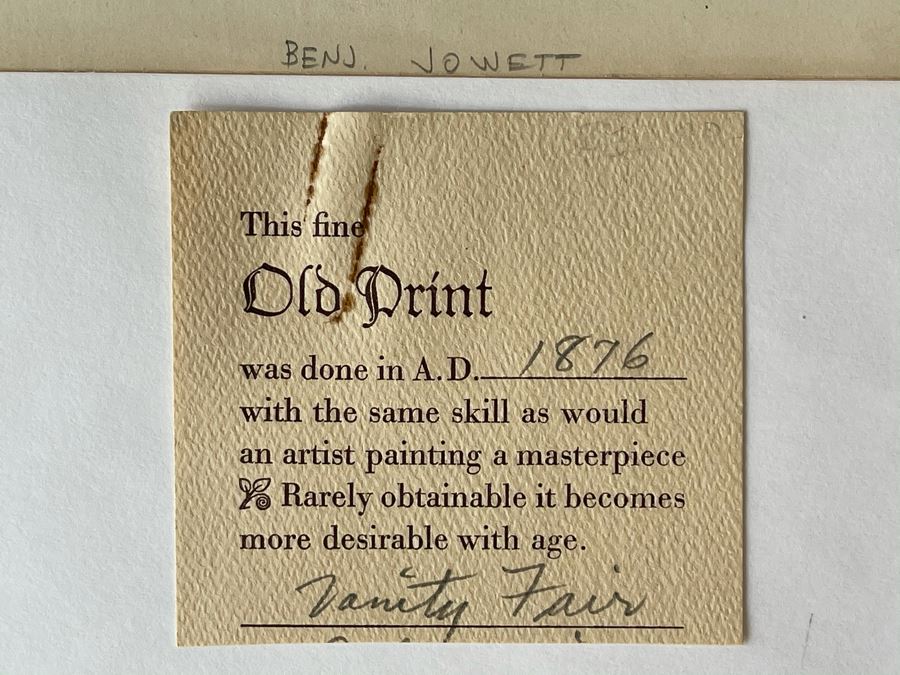 BENJ. JOWETT
This fine
Old Print
was done in A.D. 1876
with the same skill as would
an artist painting a masterpiece
Rarely obtainable it becomes
more desirable with age.
Vanity Fair